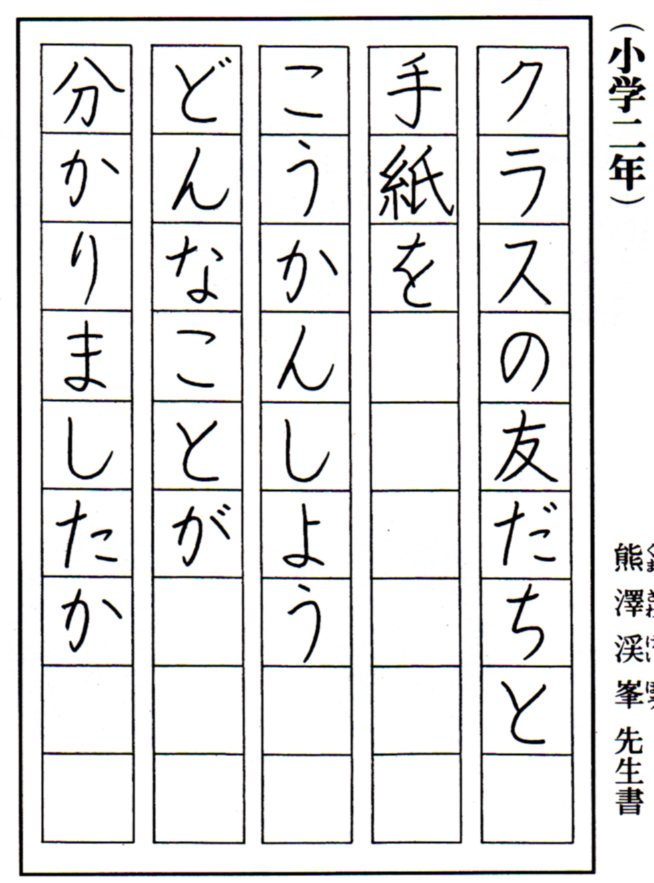 (小学二年)
熊澤渓峯先生書
クラスの友だちと
手紙を
こうかんしよう
どんなことが
分かりましたか